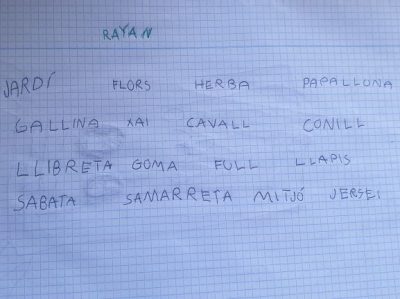 RAYAN
JARDÍ FLORS HERBA PAPALLONA
GALLINA XAI CAVALL CONILL
LLIBRETA GOMA FULL LLAPIS
SABATA SAMARRETA MITJÓ JERSEI